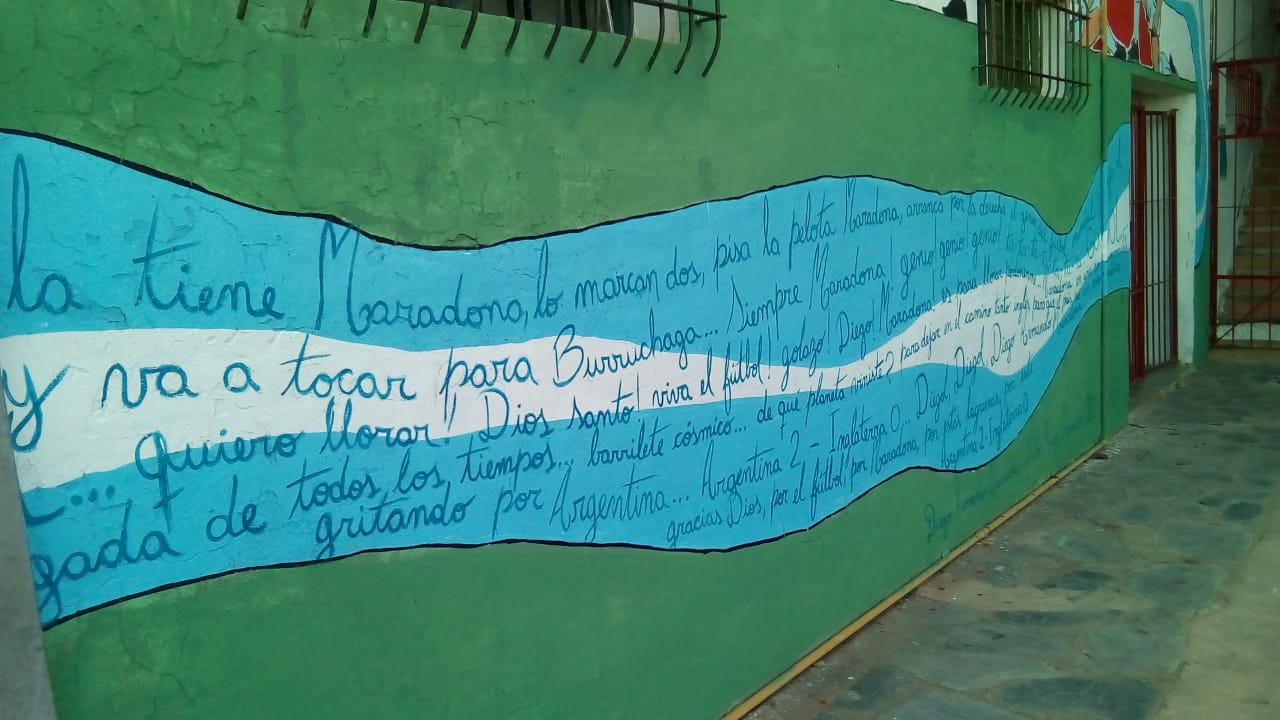 la tiene Maradona, lo marcan dos, pisa la pelota Maradona, arranca por la derecha el genio
y va a tocar para Burruchaga... Siempre Maradona! genio! genio! genio! ta-ta-ta
... quiero llorar! Dios santo! viva el fútbol! golazo! Diego! Maradona! es para llorar
gada de todos los tiempos... barrilete cósmico... de qué planeta viniste? para dejar en el camino tanto inglés para que el
gritando por Argentina... Argentina 2 - Inglaterra 0... Diegol, Diegol, Diego
gracias Dios, por el fútbol, por Maradona, por estas lagrimas,
Argentina 2 - Inglaterra 0
Diego